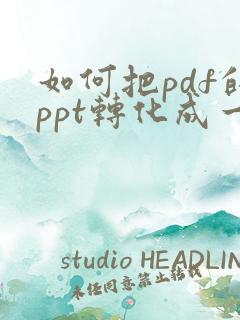 如何把pdf的
ppt轉化成一
studio HEADLIN
未经同意禁止转载